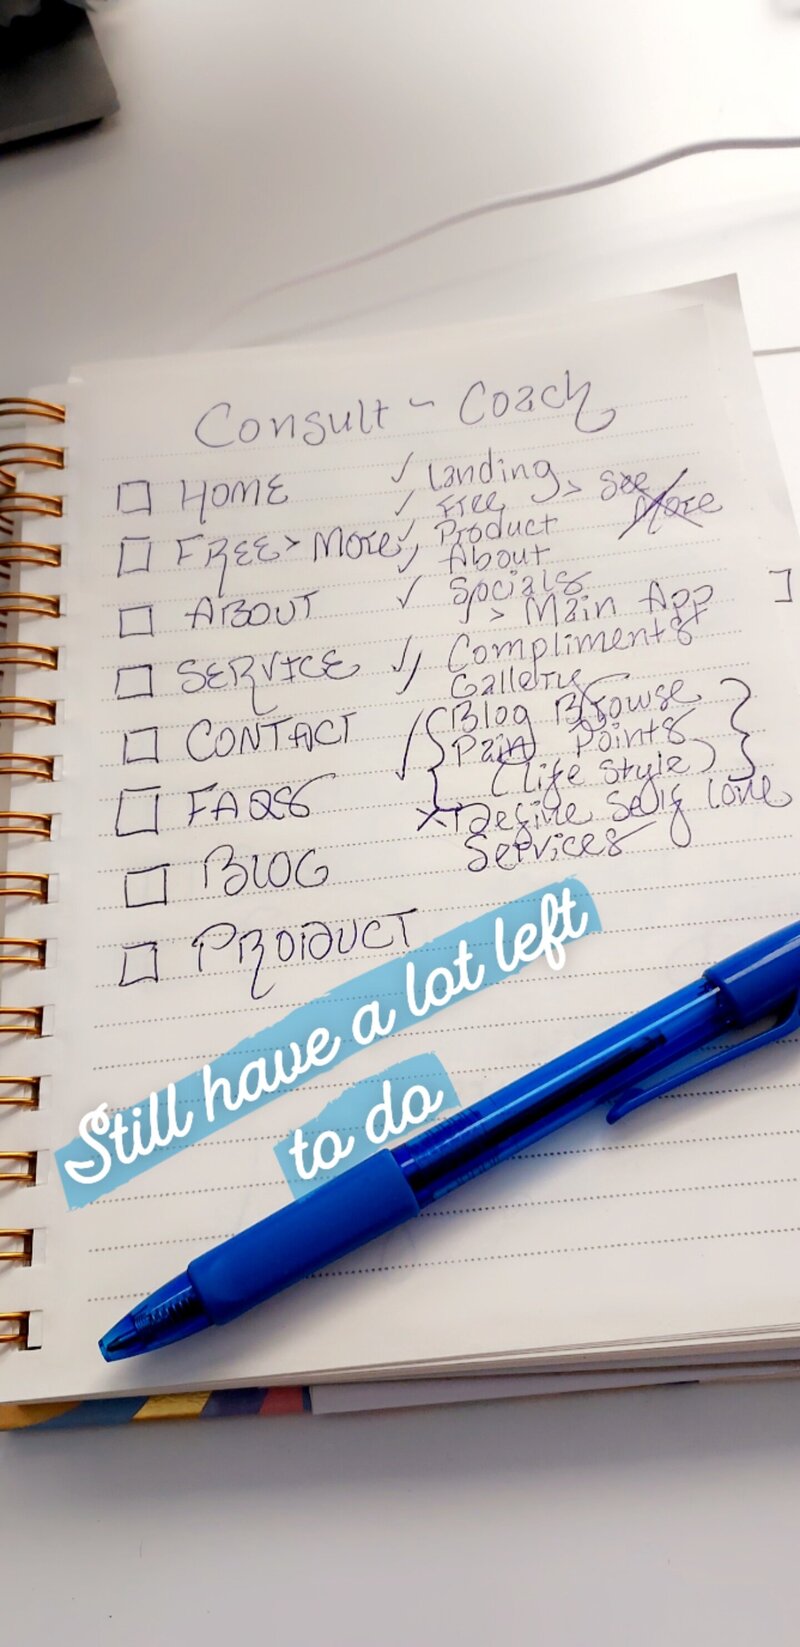 Consult ~ Coach
☐ HOME
☐ FREE > More
☐ ABOUT
☐ SERVICE
☐ CONTACT
☐ FAQS
☐ BLOG
☐ PRODUCT
✓ Landing
✓ Free > See More
✓ Product
✓ About
✓ Socials
> Main App ]
✓ Compliments
✓ Gallery
✓ { Blog Browse
Pain Points
(life style) }
x Define Self Love
Services
Still have a lot left
to do